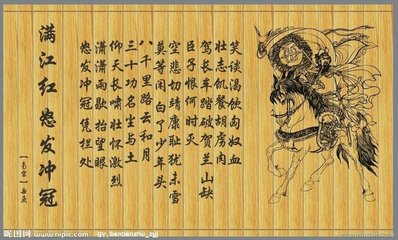 满江红 怒发冲冠
【南宋】岳飞
怒发冲冠凭栏处
潇潇雨歇抬望眼
仰天长啸壮怀激烈
三十功名尘与土
八千里路云和月
莫等闲白了少年头
空悲切靖康耻犹未雪
臣子恨何时灭
驾长车踏破贺兰山缺
壮志饥餐胡虏肉
笑谈渴饮匈奴血
昵图网
www.nipic.com